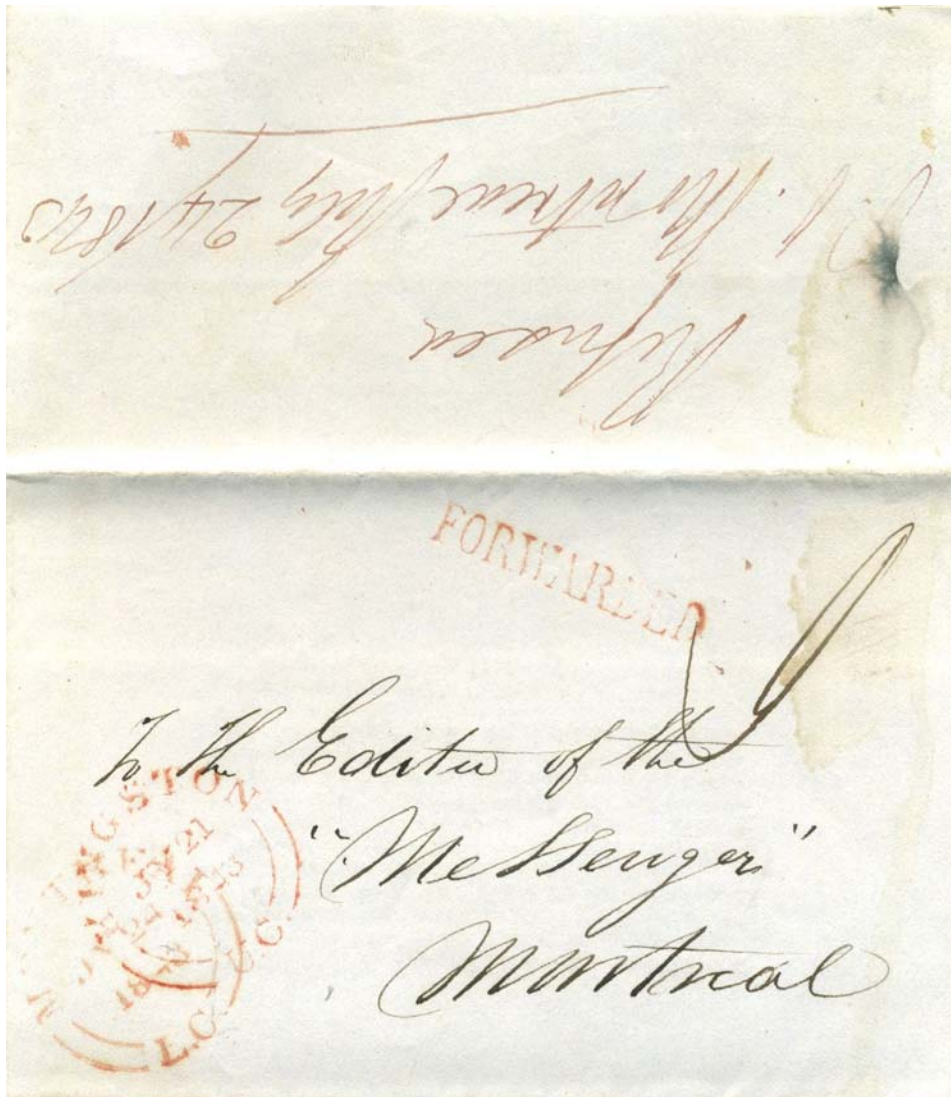 Refused
Montreal July 24/1843
FORWARDED
To the Editor of the
"Messenger"
Montreal
KINGSTON
JY 21
L.C. U.C.